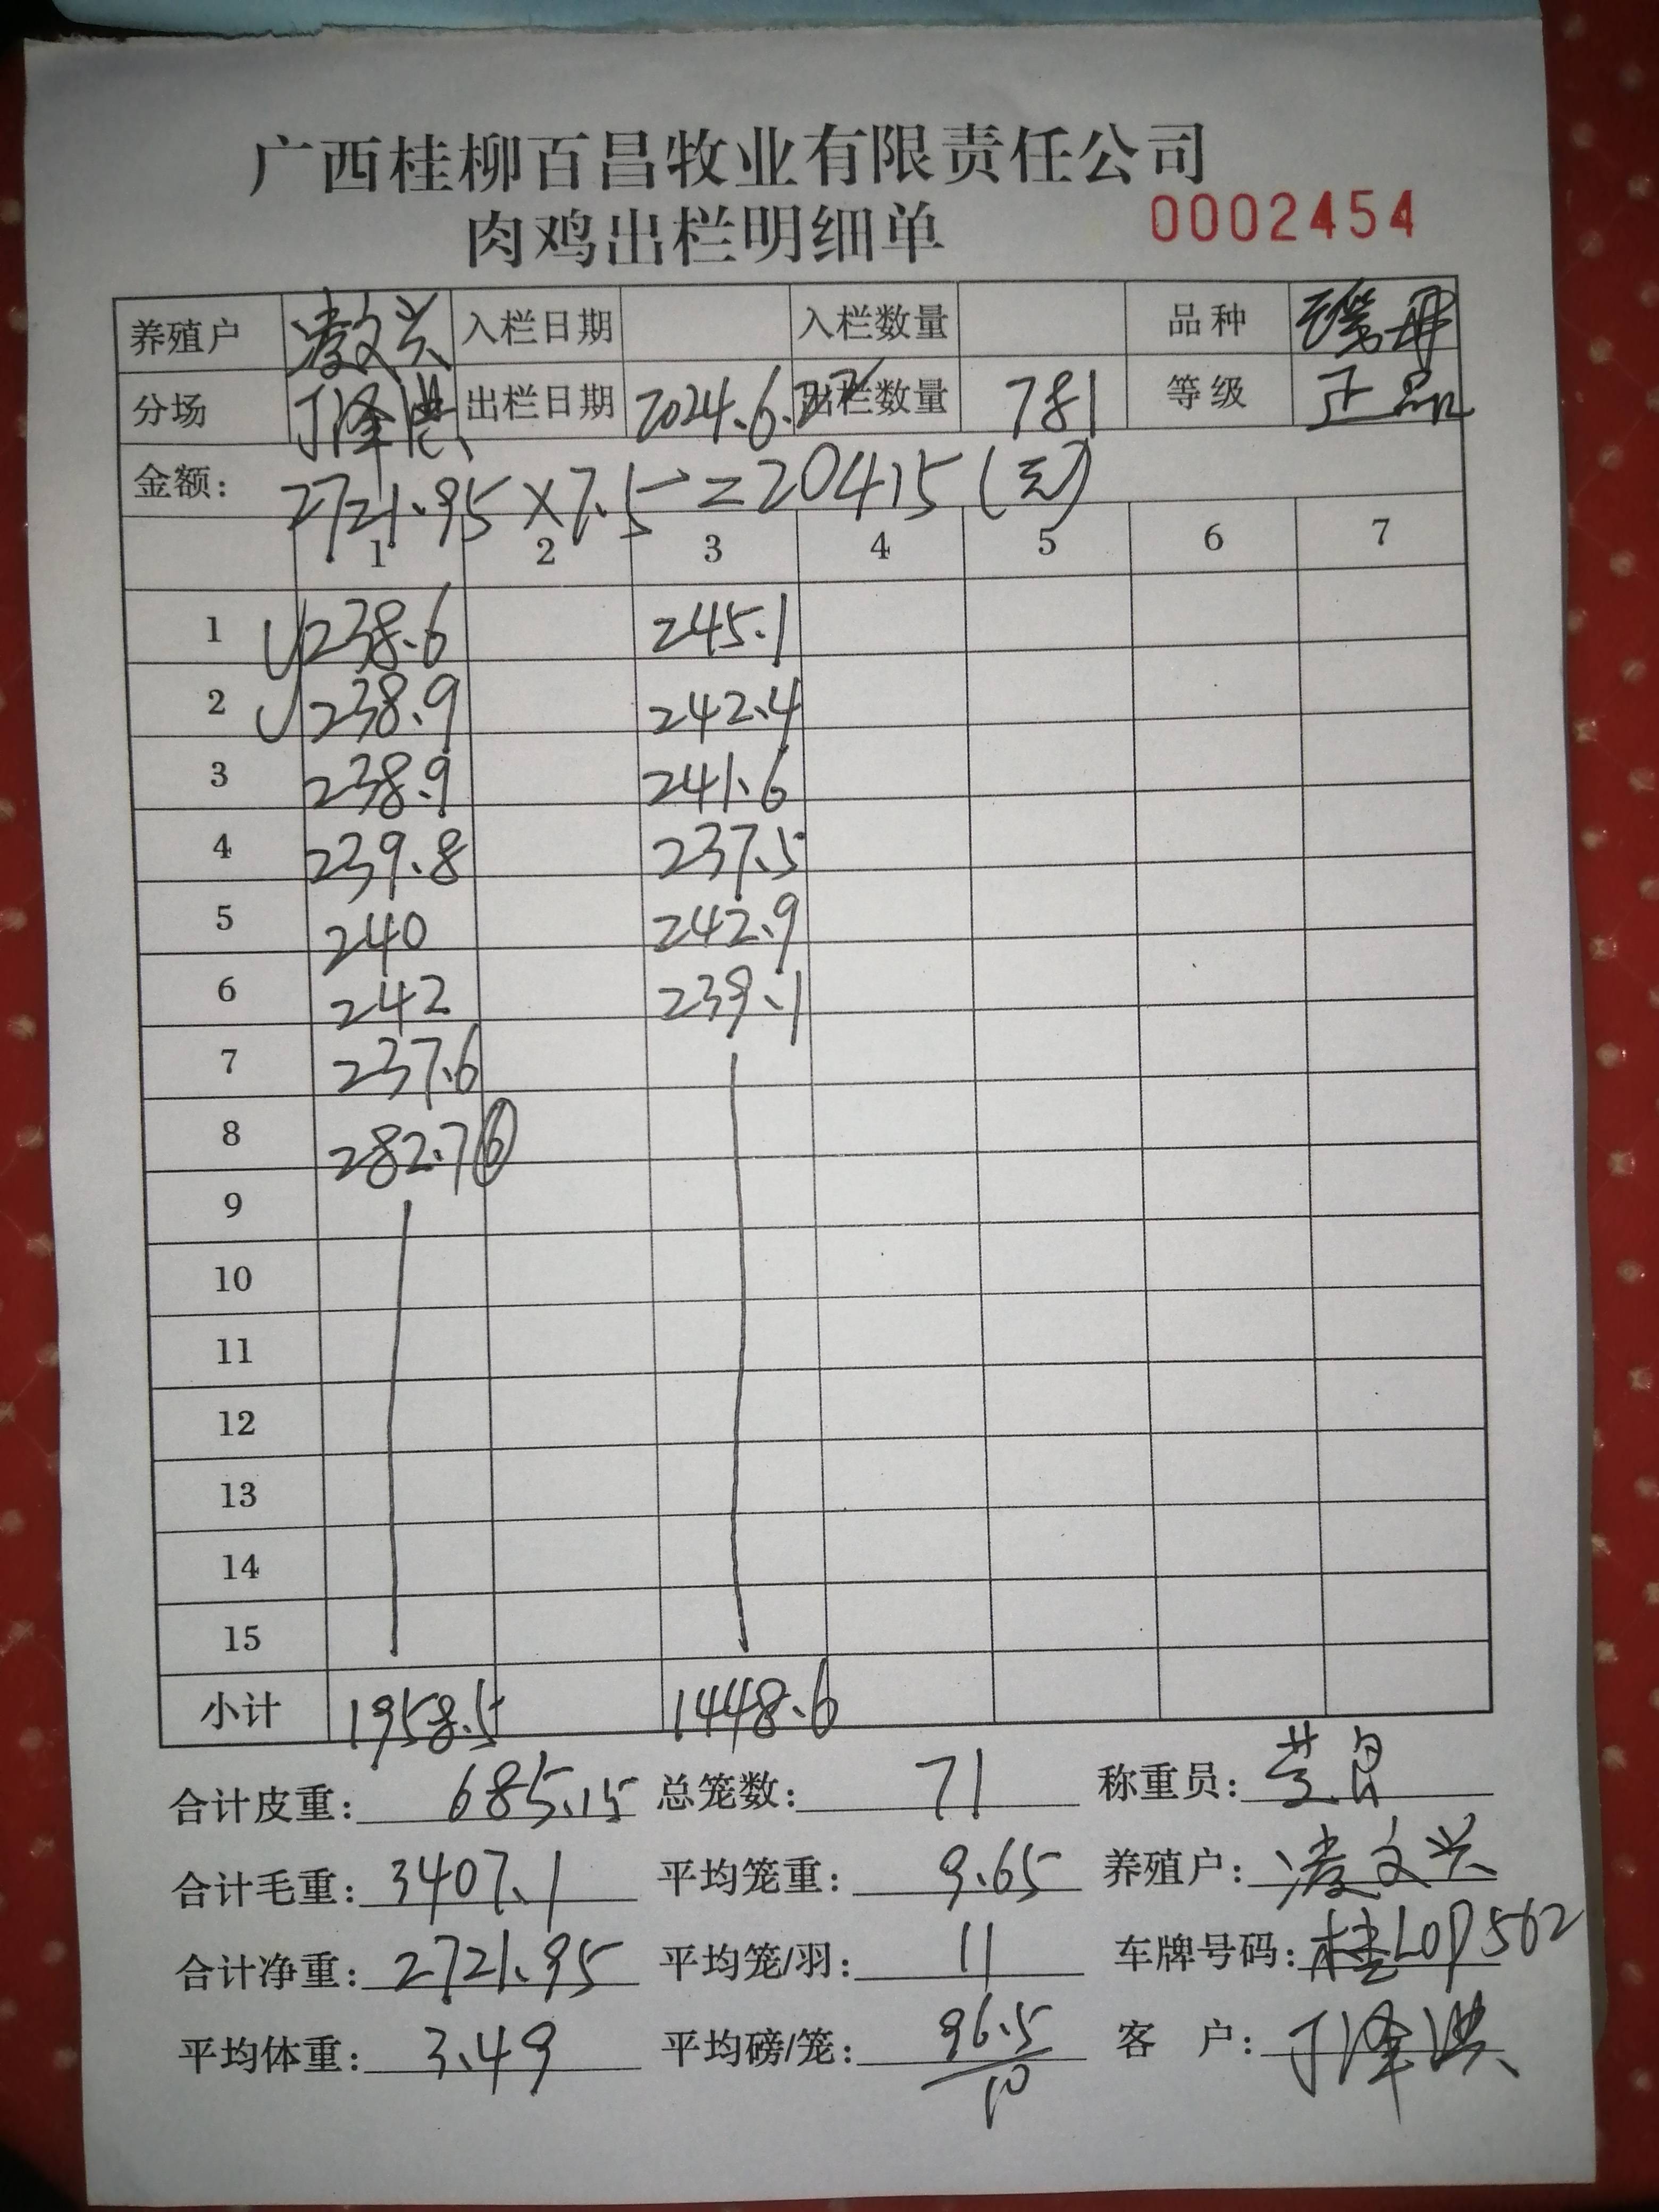 广西桂柳百昌牧业有限责任公司
肉鸡出栏明细单 0002454
养殖户 凌文兴 入栏日期 入栏数量 品种
分场 丁泽洪 出栏日期 2024.6.27 出栏数量 781 等级 正品
金额: 2721.95×7.5=20415(元)
1 2 3 4 5 6 7
1 238.6 245.1
2 238.9 242.4
3 238.9 241.6
4 239.8 237.5
5 240 242.9
6 242 239.1
7 237.6
8 282.7⑥
9
10
11
12
13
14
15
小计 1958.5 1448.6
合计皮重: 685.15 总笼数: 71 称重员:
合计毛重: 3407.1 平均笼重: 9.65 养殖户: 凌文兴
合计净重: 2721.95 平均笼/羽: 11 车牌号码: 桂L0P562
平均体重: 3.49 平均磅/笼: 96.5/10 客户: 丁泽洪